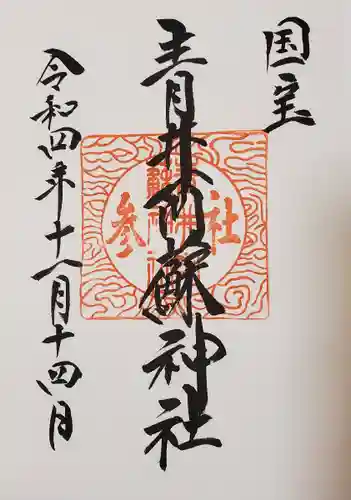 国宝
青井阿蘇神社
参社
令和四年十一月十四日